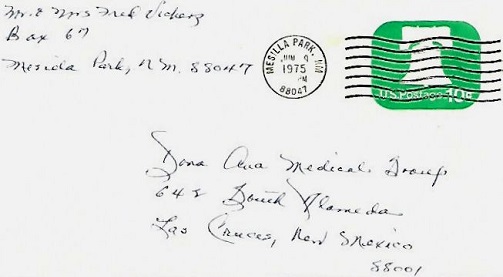 Mr. & Mrs Fred Vickers
Box 67
Mesilla Park, N.M. 88047
MESILLA PARK, NM
JUN 9
1975
PM
88047
U.S. Postage 10¢
Dona Ana Medical Group
645 South Alameda
Las Cruces, New Mexico
88001